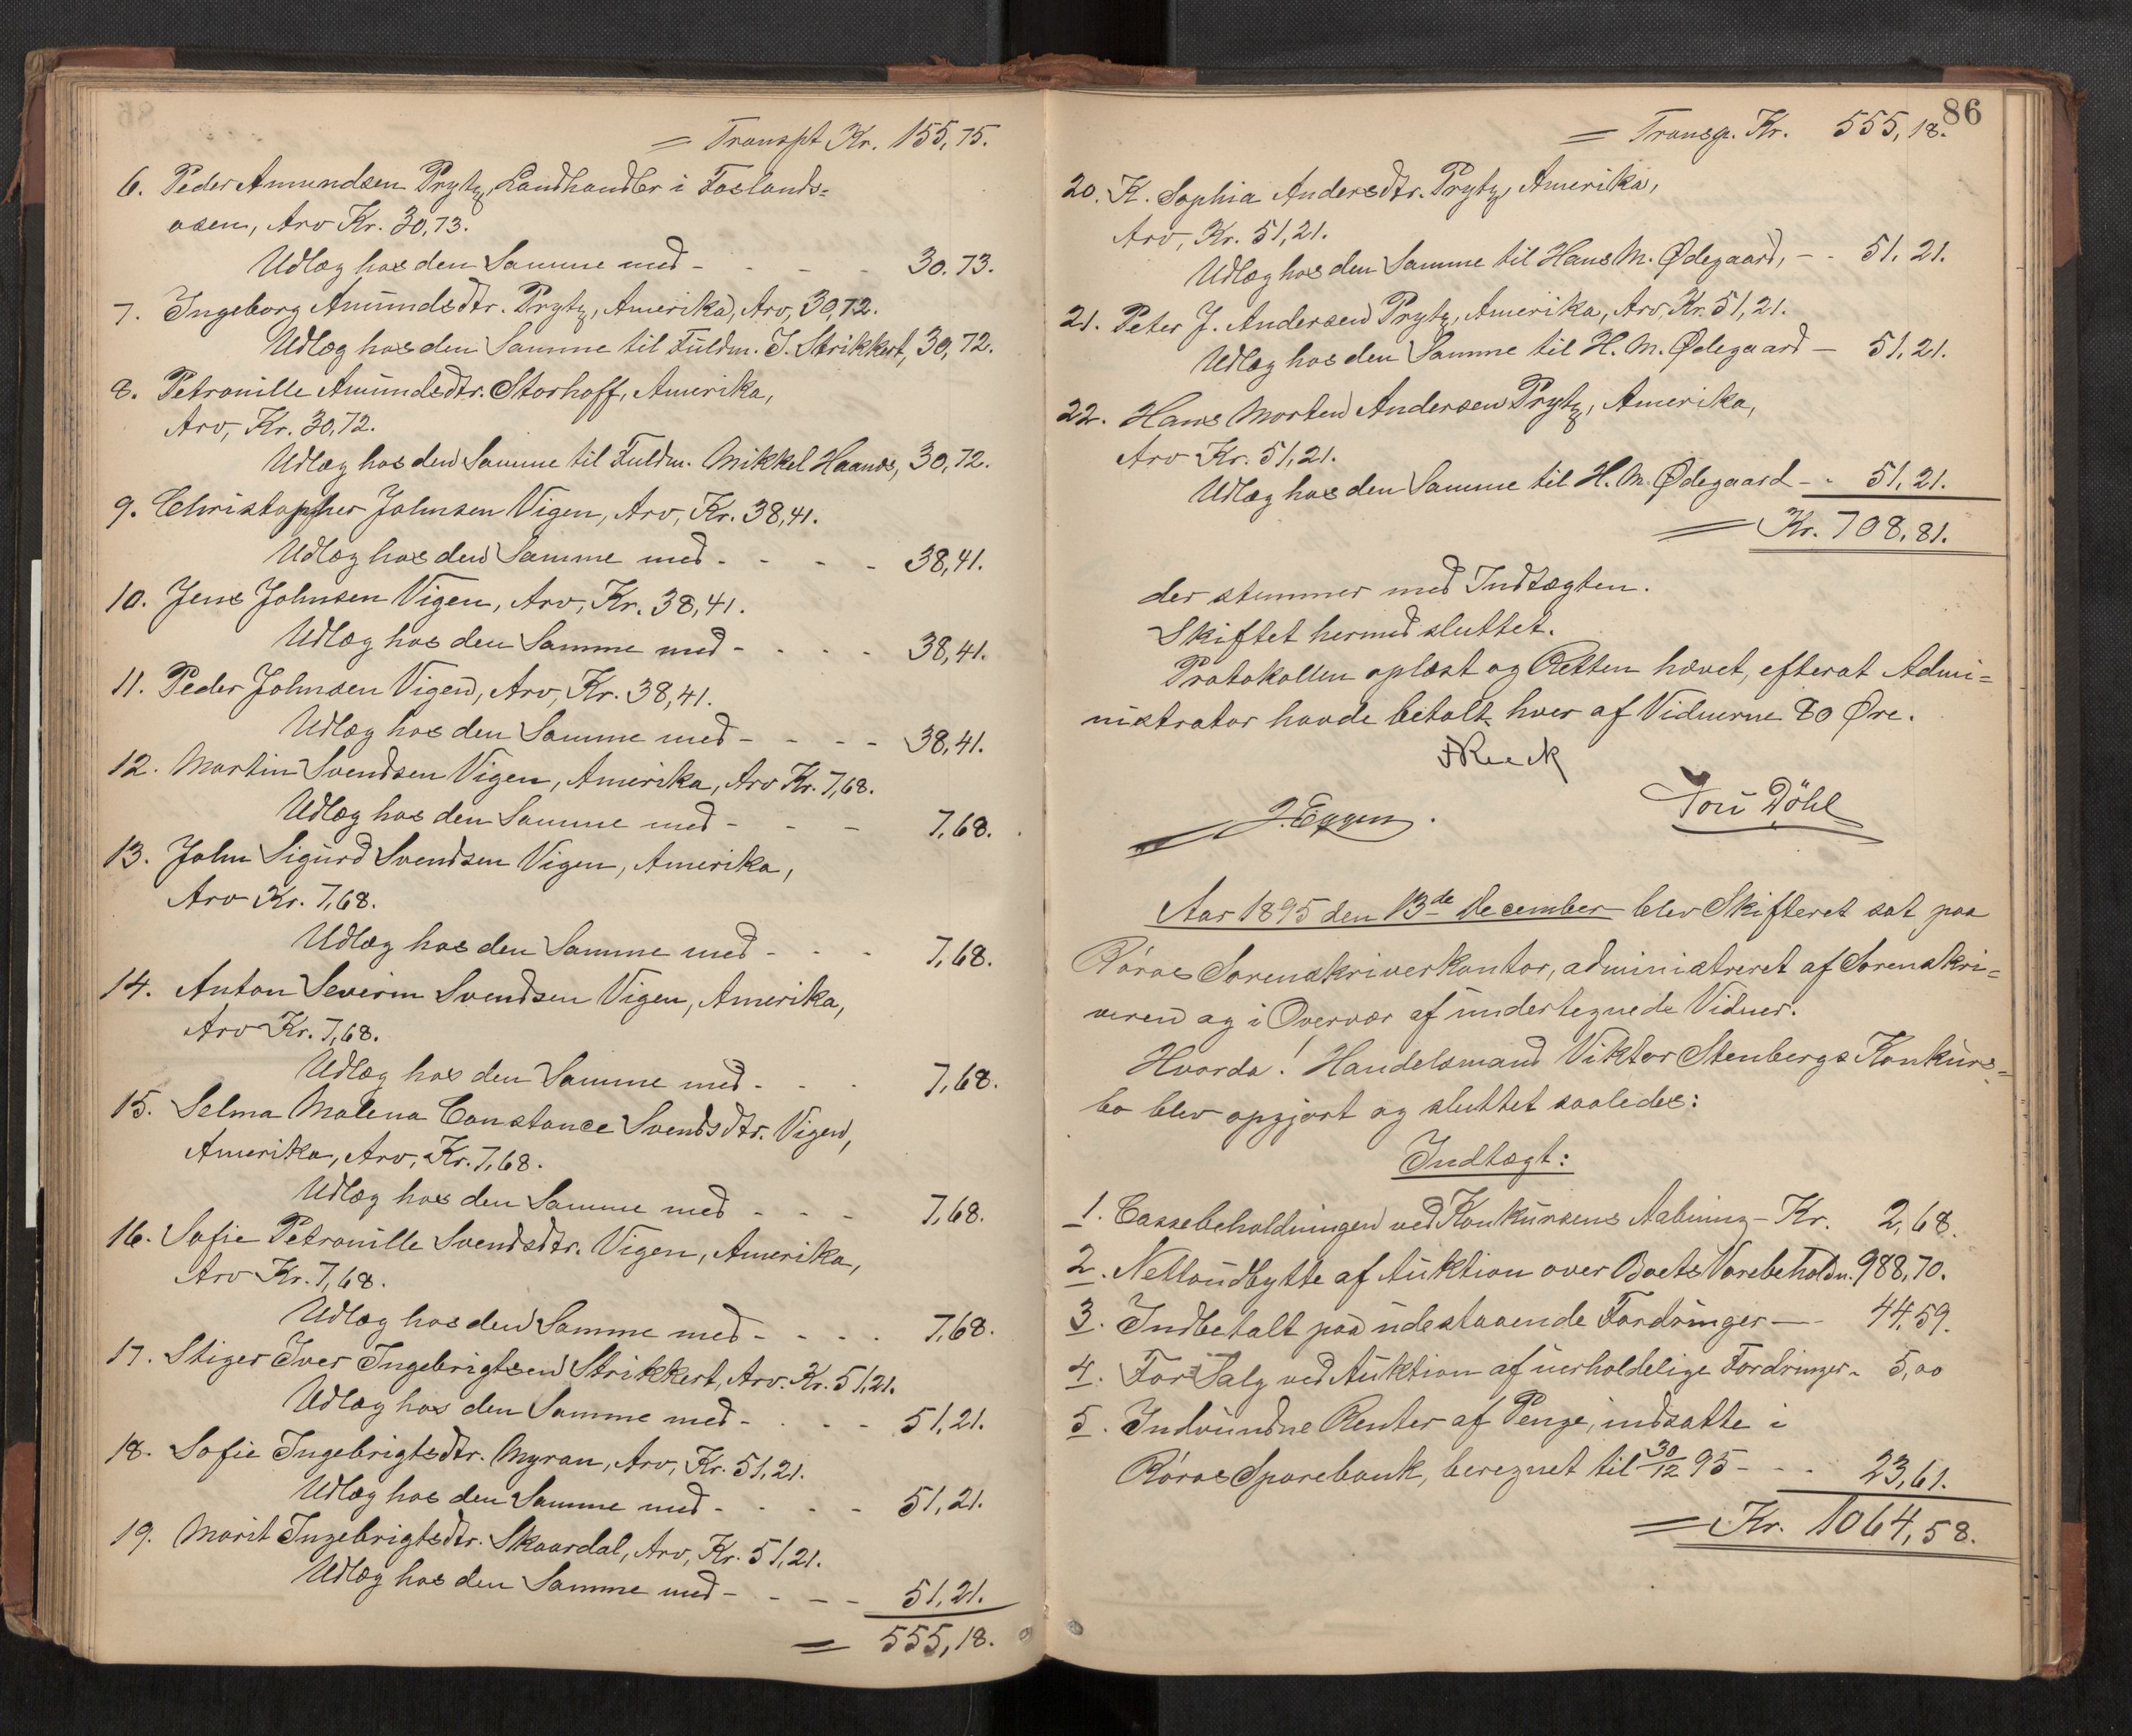 = Transpt Kr. 155,75.
6. Peder Amundsen Prytz, Landhandler i Foslands-
osen, Arv Kr. 30,73.
Udlæg hos den Samme med - - - - 30.73.
7. Ingeborg Amundsdtr. Prytz, Amerika, Arv, 30,72.
Udlæg hos den Samme til Fuldm. I. Strikkert, 30,72.
8. Petronille Amundsdtr. Storhoff, Amerika,
Arv, Kr. 30,72.
Udlæg hos den Samme til Fuldm. Mikkel Haanæs, 30,72.
9. Christopher Johnsen Vigen, Arv, Kr. 38,41.
Udlæg hos den Samme med - - - - 38,41.
10. Jens Johnsen Vigen, Arv, Kr. 38,41.
Udlæg hos den Samme med - - - - 38,41.
11. Peder Johnsen Vigen, Arv, Kr. 38,41.
Udlæg hos den Samme med - - - - 38,41.
12. Martin Svendsen Vigen, Amerika, Arv Kr. 7,68.
Udlæg hos den Samme med - - - 7,68.
13. John Sigurd Svendsen Vigen, Amerika,
Arv Kr. 7,68.
Udlæg hos den Samme med - - - 7,68.
14. Anton Severin Svendsen Vigen, Amerika,
Arv Kr. 7,68.
Udlæg hos den Samme med - - - 7,68.
15. Selma Malena Constance Svendsdtr. Vigen,
Amerika, Arv, Kr. 7,68.
Udlæg hos den Samme med - - - 7,68.
16. Sofie Petronille Svendsdtr. Vigen, Amerika,
Arv Kr. 7,68.
Udlæg hos den Samme med - - - - 7,68.
17. Stiger Iver Ingebrigtsen Strikkert, Arv. Kr. 51,21.
Udlæg hos den Samme med - - - - 51,21.
18. Sofie Ingebrigtsdtr. Myran, Arv, Kr. 51,21.
Udlæg hos den Samme med - - - - 51,21.
19. Marit Ingebrigtsdtr. Skaardal, Arv, Kr. 51,21.
Udlæg hos den Samme med - - - - 51,21.
= 555,18.
86
= Transp. Kr. 555,18.
20. K. Sophia Andersdtr. Prytz, Amerika,
Arv, Kr. 51,21.
Udlæg hos den Samme til Hans M. Ødegaard, - - 51,21.
21. Peter J. Andersen Prytz, Amerika, Arv, Kr. 51,21.
Udlæg hos den Samme til H. M. Ødegaard - 51,21.
22. Hans Morten Andersen Prytz, Amerika,
Arv Kr. 51,21.
Udlæg hos den Samme til H. M. Ødegaard - - 51,21.
= Kr. 708,81.
der stemmer med Indtægten.
Skiftet hermed sluttet.
Protokollen oplæst og Retten hævet, efterat Admi-
nistrator havde betalt hver af Vidnerne 80 Øre.
J. Eggen.
Aar 1895 den 13de December blev Skifteret sat paa
Røros Sorenskriverkontor, administreret af Sorenskri-
veren og i Overvær af undertegnede Vidner.
Hvorda! Handelsmand Viktor Stenbergs Konkurs-
bo blev opgjort og sluttet saaledes:
Indtægt:
1. Cassebeholdningen ved Konkursens Aabning - Kr. 2,68.
2. Nettoudbytte af Auktion over Boets Varebeholdn. 988,70.
3. Indbetalt paa udestaaende Fordringer - - 44,59.
4. For Salg ved Auktion af uerholdelige Fordringer - 5,00
5. Indvundne Renter af Penge, indsatte i
Røros Sparebank, beregnet til 30/12 95 - - - 23,61.
= Kr. 1064,58.